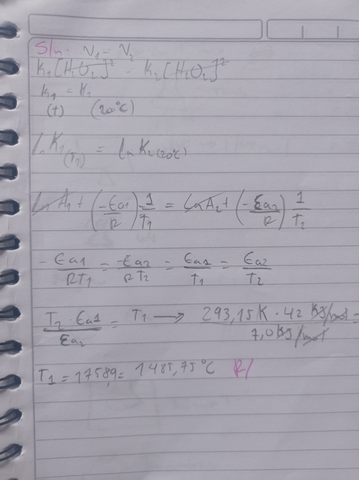 Sln: V₁ = V₂
K₁[H₂O₂]² = K₂[H₂O₂]²
K₁ = K₁
(T) (20°C)
ln K₁(T₁) = ln K₂(20°C)
ln A₁ + (-Ea₁/R) · 1/T₁ = ln A₂ + (-Ea₂/R) 1/T₂
-Ea₁/RT₁ = -Ea₂/RT₂ = Ea₁/T₁ = Ea₂/T₂
T₂ Ea₁/Ea₂ = T₁ → 293,15K · 42 KJ/mol / 7,0 KJ/mol =
T₁ = 1758,9 = 1485,75°C R/